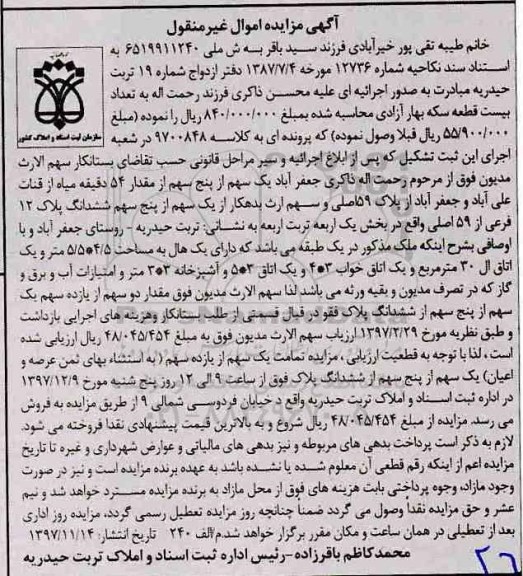 آگهی مزایده اموال غیر منقول
خانم طیبه تقی پور خیرآبادی فرزند سید باقر به ش ملی ۶۵۱۹۹۱۱۲۴۰ به
استناد سند نکاحیه شماره ۱۲۷۳۶ مورخه ۱۳۸۷/۷/۴ دفتر ازدواج شماره ۱۹ تربت
حیدریه مبادرت به صدور اجرائیه ای علیه محسن ذاکری فرزند رحمت اله به تعداد
بیست قطعه سکه بهار آزادی محاسبه شده بمبلغ ۸۴۰/۰۰۰/۰۰۰ ریال را نموده (مبلغ
۵۵/۹۰۰/۰۰۰ ریال قبلا وصول نموده) که پرونده ای به کلاسه ۹۷۰۰۸۴۸ در شعبه
سازمان ثبت اسناد و املاک کشور
اجرای این ثبت تشکیل که پس از ابلاغ اجرائیه و سیر مراحل قانونی حسب تقاضای بستانکار سهم الارث
مدیون فوق از مرحوم رحمت اله ذاکری جعفر آباد یک سهم از پنج سهم از مقدار ۵۴ دقیقه میاه از قنات
علی آباد و جعفر آباد از پلاک ۵۹اصلی و سهم ارث بدهکار از یک سهم از پنج سهم ششدانگ پلاک ۱۲
فرعی از ۵۹ اصلی واقع در بخش یک اربعه تربت اربعه به نشانی: تربت حیدریه - روستای جعفر آباد و با
اوصافی بشرح اینکه ملک مذکور در یک طبقه می باشد که دارای یک هال به مساحت ۴/۵*۵/۵ متر و یک
اتاق ال ۳۰ مترمربع و یک اتاق خواب ۳*۴ و یک اتاق ۳*۵ و آشپزخانه ۳*۳ متر و امتیازات آب و برق و
گاز که در تصرف مدیون و بقیه ورثه می باشد لذا سهم الارث مدیون فوق مقدار دو سهم از یازده سهم یک
سهم از پنج سهم از ششدانگ پلاک فقو در قبال قسمتی از طلب بستانکار وهزینه های اجرایی بازداشت
و طبق نظریه مورخ ۱۳۹۷/۲/۲۹ ارزیاب سهم الارث مدیون فوق به مبلغ ۴۸/۰۴۵/۴۵۴ ریال ارزیابی شده
است ، لذا با توجه به قطعیت ارزیابی ، مزایده تمامت یک سهم از یازده سهم ( به استثناء بهای ثمن عرصه و
اعیان) یک سهم از پنج سهم از ششدانگ پلاک فوق از ساعت ۹ الی ۱۲ روز پنج شنبه مورخ ۱۳۹۷/۱۲/۹
در اداره ثبت اسناد و املاک تربت حیدریه واقع د خیابان فردوسی شمالی ۹ از طریق مزایده به فروش
می رسد. مزایده از مبلغ ۴۸/۰۴۵/۴۵۴ ریال شروع و به بالاترین قیمت پیشنهادی نقدا فروخته می شود.
لازم به ذکر است پرداخت بدهی های مربوطه و نیز بدهی های مالیاتی و عوارض شهرداری و غیره تا تاریخ
مزایده اعم از اینکه رقم قطعی آن معلوم شده یا نشده باشد به عهده برنده مزایده است و نیز در صورت
وجود مازاد، وجوه پرداختی بابت هزینه های فوق از محل مازاد به برنده مزایده مسترد خواهد شد و نیم
عشر و حق مزایده نقداً وصول می گردد ضمناً چنانچه روز مزایده تعطیل رسمی گردد، مزایده روز اداری
بعد از تعطیلی در همان ساعت و مکان مقرر برگزار خواهد شد.م/الف ۲۴۰ تاریخ انتشار: ۱۳۹۷/۱۱/۱۴
محمدکاظم باقرزاده-رئیس اداره ثبت اسناد و املاک تربت حیدریه
۲۶